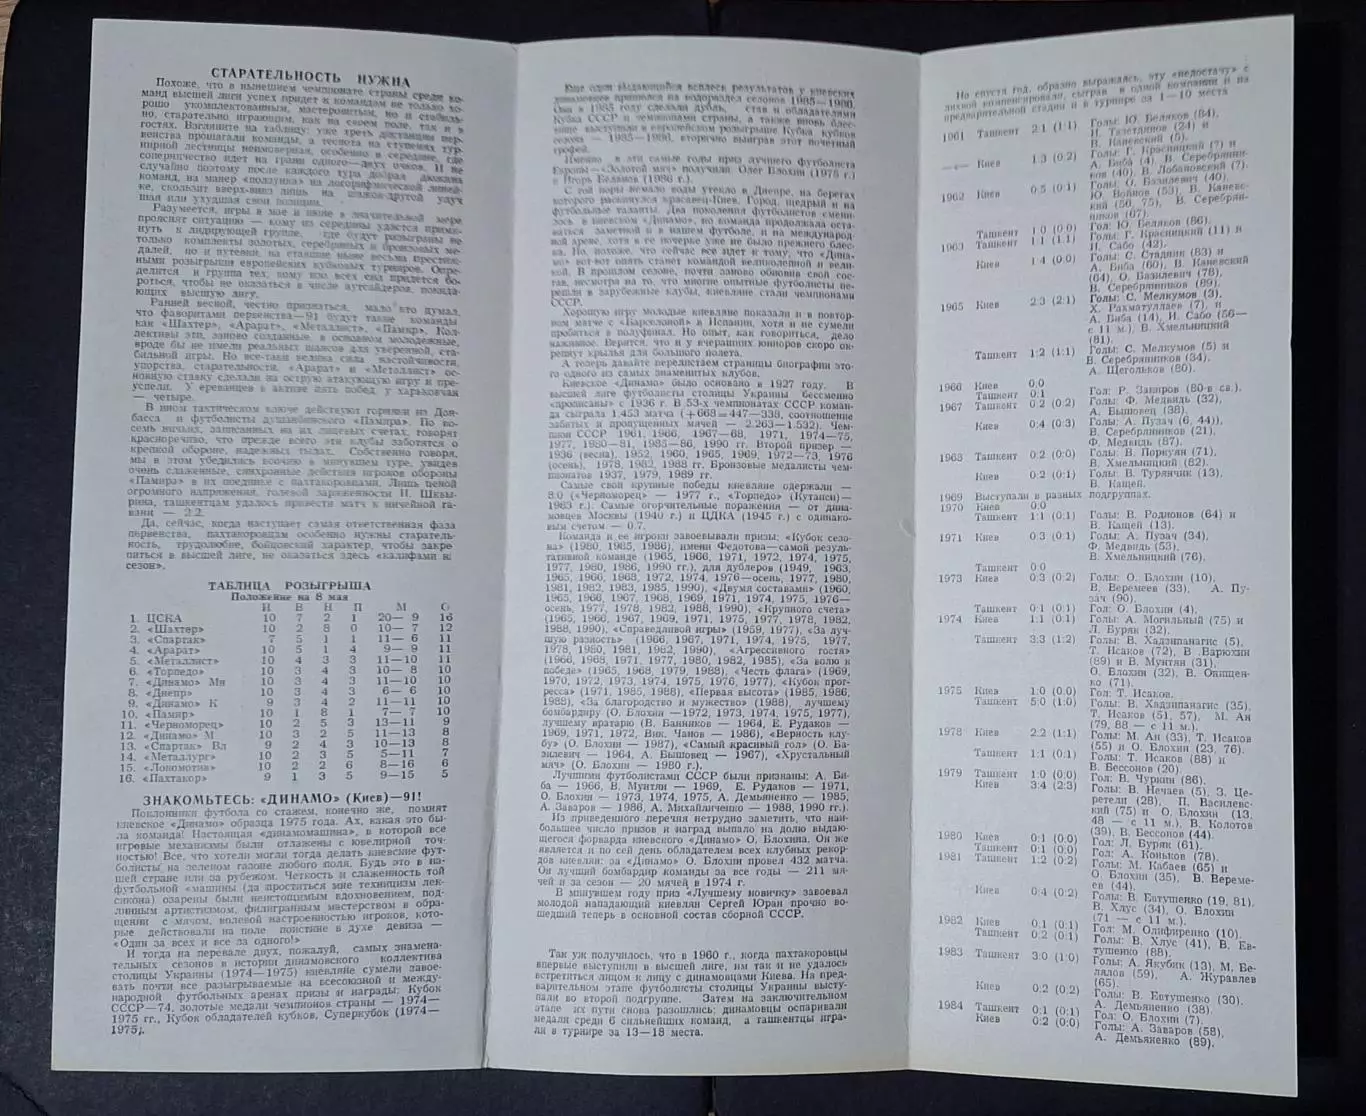 СТАРАТЕЛЬНОСТЬ НУЖНА
Похоже, что в нынешнем чемпионате страны среди ко-
манд высшей лиги успех придет к командам не только хо-
рошо укомплектованным, мастеровитым, но и стабиль-
но, старательно играющим, как на своем поле, так и в
гостях. Взгляните на таблицу: уже треть дистанции пер-
венства прошагали команды, а теснота на ступенях тур-
нирной лестницы неимоверная, особенно в середине, где
соперничество идет на грани одного—двух очков. И не
случайно поэтому после каждого тура добрая дюжина
команд, на манер «ползунка» на логарифмической линей-
ке, скользит вверх-вниз лишь на шажок-другой улуч
шая или ухудшая свои позиции.
Разумеется, игры в мае и июне в значительной мере
прояснят ситуацию — кому из середины удастся примк-
нуть к лидирующей группе, где будут разыграны не
только комплекты золотых, серебряных и бронзовых ме-
далей, но и путевки, на ставшие ныне весьма престиж-
ными розыгрыши европейских кубковых турниров. Опре-
делится и группа тех, кому изо всех сил придется бо-
роться, чтобы не оказаться в числе аутсайдеров, покида-
ющих высшую лигу.
Ранней весной, честно признаться, мало кто думал,
что фаворитами первенства—91 будут такие команды
как «Шахтер», «Арарат», «Металлист», «Памир». Кол-
лективы эти, заново созданные, в основном молодежные,
вроде бы не имели реальных шансов для уверенной, ста-
бильной игры. Но все-таки велика сила настойчивости,
упорства, старательности. «Арарат» и «Металлист» ос-
новную ставку сделали на острую атакующую игру и пре-
успели. У ереванцев в активе пять побед, у харьковчан
— четыре.
В ином тактическом ключе действуют горняки из Дон-
басса и футболисты душанбинского «Памира». По во-
семь ничьих, записанных на их лицевых счетах, говорят
красноречиво, что прежде всего эти клубы заботятся о
крепкой обороне, надежных тылах. Собственно говоря,
мы в этом убедились воочию в минувшем туре, увидев
очень слаженные, синхронные действия игроков обороны
«Памира» в их поединке с пахтакоровцами. Лишь ценой
огромного напряжения, голевой заряженности И. Шквы-
рина, ташкентцам удалось привести матч к ничейной га-
вани — 2:2.
Да, сейчас, когда наступает самая ответственная фаза
первенства, пахтакоровцам особенно нужны старатель-
ность, трудолюбие, бойцовский характер, чтобы закре
питься в высшей лиге, не оказаться здесь «калифами на
сезон».
ТАБЛИЦА РОЗЫГРЫША
Положение на 8 мая
И В Н П М О
1. ЦСКА 10 7 2 1 20— 9 16
2. «Шахтер» 10 2 8 0 10— 7 12
3. «Спартак» 7 5 1 1 11— 6 11
4. «Арарат» 10 5 1 4 9— 9 11
5. «Металлист» 10 4 3 3 11—10 11
6. «Торпедо» 10 3 4 3 10— 8 10
7. «Динамо» Мн 10 3 4 3 11—10 10
8. «Днепр» 10 3 4 3 6— 6 10
9. «Динамо» К 9 3 4 2 11—11 10
10. «Памир» 10 1 8 1 7— 7 10
11. «Черноморец» 10 2 5 3 13—11 9
12. «Динамо» М 10 3 2 5 11—13 8
13. «Спартак» Вл 9 2 4 3 10—13 8
14. «Металлург» 10 2 3 5 5—11 7
15. «Локомотив» 10 2 2 6 8—16 6
16. «Пахтакор» 9 1 3 5 9—15 5
ЗНАКОМЬТЕСЬ: «ДИНАМО» (Киев)—91!
Поклонники футбола со стажем, конечно же, помнят
киевское «Динамо» образца 1975 года. Ах, какая это бы-
ла команда! Настоящая «динамомашина», в которой все
игровые механизмы были отлажены с ювелирной точ-
ностью! Все, что хотели могли тогда делать киевские фут-
болисты на зеленом газоне любого поля. Будь это в на-
шей стране или за рубежом. Четкость и слаженность той
футбольной «машины (да проститься мне техницизм лек-
сикона) озарены были неистощимым вдохновением, под-
линным артистизмом, филигранным мастерством в обра-
щении с мячом, волевой настроенностью игроков, кото-
рые действовали на поле поистине в духе девиза —
«Один за всех и все за одного!»
И тогда на перевале двух, пожалуй, самых знамена-
тельных сезонов в истории динамовского коллектива
столицы Украины (1974—1975) киевляне сумели завое-
вать почти все разыгрываемые на всесоюзной и между-
народной футбольных аренах призы и награды: Кубок
СССР—74, золотые медали чемпионов страны — 1974—
1975 гг., Кубок обладателей кубков, Суперкубок (1974—
1975).
Еще один выдающийся всплеск результатов у киевских
динамовцев пришелся на водораздел сезонов 1985—1986.
Они в 1985 году сделали дубль, став и обладателями
Кубка СССР и чемпионами страны, а также вновь блес-
тяще выступили в европейском розыгрыше Кубка кубков
сезона — 1985—1986, вторично выиграв этот почетный
трофей.
Именно в эти самые годы приз лучшего футболиста
Европы—«Золотой мяч» получили: Олег Блохин (1975 г.)
и Игорь Беланов (1986 г.).
С той поры немало воды утекло в Днепре, на берегах
которого раскинулся красавец-Киев. Город, щедрый и на
футбольные таланты. Два поколения футболистов смени-
лось в киевском «Динамо», но команда продолжала оста-
ваться заметной и в нашем футболе, и на международ-
ной арене, хотя в ее почерке уже не было прежнего блес-
ка. Но, похоже, что сейчас все идет к тому, что «Дина-
мо» вот-вот опять станет командой великолепной и вели-
кой. В прошлом сезоне, почти заново обновив свой сос-
тав, несмотря на то, что многие опытные футболисты пе-
решли в зарубежные клубы, киевляне стали чемпионами
СССР.
Хорошую игру молодые киевляне показали и в повтор-
ном матче с «Барселоной» в Испании, хотя и не сумели
пробиться в полуфинал. Но опыт, как говориться, дело
наживное. Верится, что и у вчерашних юниоров скоро ок-
репнут крылья для большого полета.
А теперь давайте перелистаем страницы биографии это-
го одного из самых знаменитых клубов.
Киевское «Динамо» было основано в 1927 году. В
высшей лиге футболисты столицы Украины бессменно
«прописаны» с 1936 г. В 53-х чемпионатах СССР коман-
да сыграла 1.453 матча (+668=447—338, соотношение
забитых и пропущенных мячей — 2.263—1.532). Чем-
пион СССР 1961, 1966, 1967—68, 1971, 1974—75,
1977, 1980—81, 1985—86, 1990 гг. Второй призер —
1936 (весна), 1952, 1960, 1965, 1969, 1972—73, 1976
(осень), 1978, 1982, 1988 гг. Бронзовые медалисты чем-
пионатов 1937, 1979, 1989 гг.
Самые свои крупные победы киевляне одержали —
8:0 («Черноморец» — 1977 г., «Торпедо» (Кутаиси)—
1983 г.). Самые огорчительные поражения — от дина-
мовцев Москвы (1940 г.) и ЦДКА (1945 г.) с одинако-
вым счетом — 0:7.
Команда и ее игроки завоевывали призы: «Кубок сезо-
на» (1980, 1985, 1986), имени Федотова—самой резуль-
тативной команде (1965, 1966, 1971, 1972, 1974, 1975,
1977, 1980, 1986, 1990 гг.), для дублеров (1949, 1963,
1965, 1966, 1968, 1972, 1974, 1976—осень, 1977, 1980,
1981, 1982, 1983, 1985, 1990), «Двумя составами» (1960,
1965, 1966, 1967, 1968, 1969, 1971, 1974, 1975, 1976—
осень, 1977, 1978, 1982, 1988, 1990), «Крупного счета»
(1965, 1966, 1967, 1969, 1971, 1975, 1977, 1978, 1982,
1988, 1990), «Справедливой игры» (1959, 1977), «За луч-
шую разность» (1966, 1971, 1974, 1975, 1977,
1978, 1980, 1981, 1982, 1990), «Агрессивного гостя»
(1966, 1968, 1971, 1977, 1980, 1982, 1985), «За волю к
победе» (1965, 1968, 1979, 1988), «Честь флага» (1969,
1970, 1972, 1973, 1974, 1975, 1976, 1977), «Кубок прог-
ресса» (1971, 1985, 1988), «Первая высота» (1985, 1986,
1988), «За благородство и мужество» (1988), лучшему
бомбардиру (О. Блохин —1972, 1973, 1974, 1975, 1977),
лучшему вратарю (В. Банников — 1964, Е. Рудаков —
1969, 1971, 1972, Вик. Чанов — 1986), «Верность клу-
бу» (О. Блохин — 1987), «Самый красивый гол» (О. Ба-
зилевич — 1964, А. Бышовец — 1967), «Хрустальный
мяч» (О. Блохин — 1980 г.).
Лучшими футболистами СССР были признаны: А. Би-
ба — 1966, В. Мунтян — 1969, Е. Рудаков — 1971,
О. Блохин — 1973, 1974, 1975, А. Демьяненко — 1985,
А. Заваров — 1986, А. Михайличенко — 1988, 1990 гг.).
Из приведенного перечня нетрудно заметить, что наи-
большее число призов и наград выпало на долю выдаю-
щегося форварда киевского «Динамо» О. Блохина. Он же
является и по сей день обладателем всех клубных рекор-
дов киевлян: за «Динамо» О. Блохин провел 432 матча.
Он лучший бомбардир команды за все годы — 211 мя-
чей и за сезон — 20 мячей в 1974 г.
В минувшем году приз «Лучшему новичку» завоевал
молодой нападающий киевлян Сергей Юран прочно во-
шедший теперь в основной состав сборной СССР.
Так уж получилось, что в 1960 г., когда пахтакоровцы
впервые выступили в высшей лиге, им так и не удалось
встретиться лицом к лицу с динамовцами Киева. На пред-
варительном этапе футболисты столицы Украины высту-
пали во второй подгруппе. Затем на заключительном
этапе их пути снова разошлись: динамовцы оспаривали
медали среди 6 сильнейших команд, а ташкентцы игра-
ли в турнире за 13—18 места.
Но спустя год, образно выражаясь, эту «недостачу» с
лихвой компенсировали, сыграв в одной компании и на
предварительной стадии и в турнире за 1—10 места
1961 Ташкент 2:1 (1:1) Голы: Ю. Беляков (84),
И. Тазетдинов (24) и
В. Каневский (5).
—»— Киев 1:3 (0:2) Голы: Г. Красницкий (7) и
А. Биба (4), В. Серебрянни-
ков (40), В. Лобановский (7).
1962 Киев 0:5 (0:1) Голы: О. Базилевич (40),
Ю. Войнов (53), В. Каневс-
кий (50, 75), В. Серебрян-
ников (67).
Ташкент 1:0 (0:0) Гол: Ю. Беляков (86).
1963 Ташкент 1:1 (1:1) Голы: Г. Красницкий (11) и
Й. Сабо (42).
Киев 1:4 (0:0) Голы: С. Стадник (83) и
А. Биба (60), В. Каневский
(64), О. Базилевич (78),
В. Серебрянников (89).
1965 Киев 2:3 (2:1) Голы: С. Мелкумов (3),
Х. Рахматуллаев (7), и
А. Биба (14), Й. Сабо (56—
с 11 м.), В. Хмельницкий
(81).
Ташкент 1:2 (1:1) Голы: С. Мелкумов (5) и
В. Серебрянников (34).
А. Щегольков (80).
1966 Киев 0:0
Ташкент 0:1 Гол: Р. Закиров (80-в св.).
1967 Ташкент 0:2 (0:2) Голы: Ф. Медвидь (32),
А. Бышовец (38).
Киев 0:4 (0:3) Голы: А. Пузач (6, 44)),
В. Серебрянников (21),
Ф. Медвидь (87).
1968 Ташкент 0:2 (0:0) Голы: В. Поркуян (71),
В. Хмельницкий (82).
Киев 0:2 (0:1) Голы: В. Турянчик (13),
В. Кащей.
1969 Выступали в разных подгруппах.
1970 Киев 0:0
Ташкент 1:1 (0:1) Голы: В. Родионов (64) и
В. Кащей (13).
1971 Киев 0:3 (0:1) Голы: А. Пузач (34),
Ф. Медвидь (53),
В. Хмельницкий (76).
Ташкент 0:0
1973 Киев 0:3 (0:2) Голы: О. Блохин (10),
В. Веремеев (33), А. Пу-
зач (90).
Ташкент 0:1 (0:1) Гол: О. Блохин (4).
1974 Киев 1:1 (0:1) Голы: А. Могильный (75) и
Л. Буряк (32).
Ташкент 3:3 (1:2) Голы: В. Хадзипанагис (5),
Т. Исаков (72), В. Варюхин
(89) и В. Мунтян (31),
О. Блохин (32), В. Онищен-
ко (71).
1975 Киев 1:0 (0:0) Гол: Т. Исаков.
Ташкент 5:0 (1:0) Голы: В. Хадзипанагис (35),
Т. Исаков (51, 57), М. Ан
(79, 88 — с 11 м.).
1978 Киев 2:2 (1:1) Голы: М. Ан (33), Т. Исаков
(55) и О. Блохин (23, 76).
Ташкент 1:1 (0:1) Голы: Т. Исаков (88) и
В. Бессонов (20).
1979 Ташкент 1:0 (0:0) Гол: В. Чуркин (86).
Киев 3:4 (2:3) Голы: В. Нечаев (5), З. Це-
ретели (28), П. Василевс-
кий (75) и О. Блохин (13,
48 — с 11 м.), В. Колотов
(39), В. Бессонов (44).
1980 Киев 0:1 (0:0) Гол: Л. Буряк (61).
Ташкент 0:1 (0:0) Гол: А. Коньков (78).
1981 Ташкент 1:2 (0:2) Голы: М. Кабаев (65) и
О. Блохин (35), В. Вереме-
ев (44).
Киев 0:4 (0:2) Голы: В. Евтушенко (19, 81),
В. Хлус (34), О. Блохин
(71 — с 11 м.).
1982 Киев 0:1 (0:1) Гол: М. Олифиренко (10).
Ташкент 0:2 (0:1) Голы: В. Хлус (41), В. Ев-
тушенко (88).
1983 Ташкент 3:0 (1:0) Голы: А. Якубик (13), М. Бе-
лялов (59), А. Журавлев
(65).
Киев 0:2 (0:2) Голы: В. Евтушенко (30),
А. Демьяненко (38).
1984 Ташкент 0:1 (0:1) Гол: О. Блохин (7).
Киев 0:2 (0:0) Голы: А. Заваров (58),
А. Демьяненко (89).